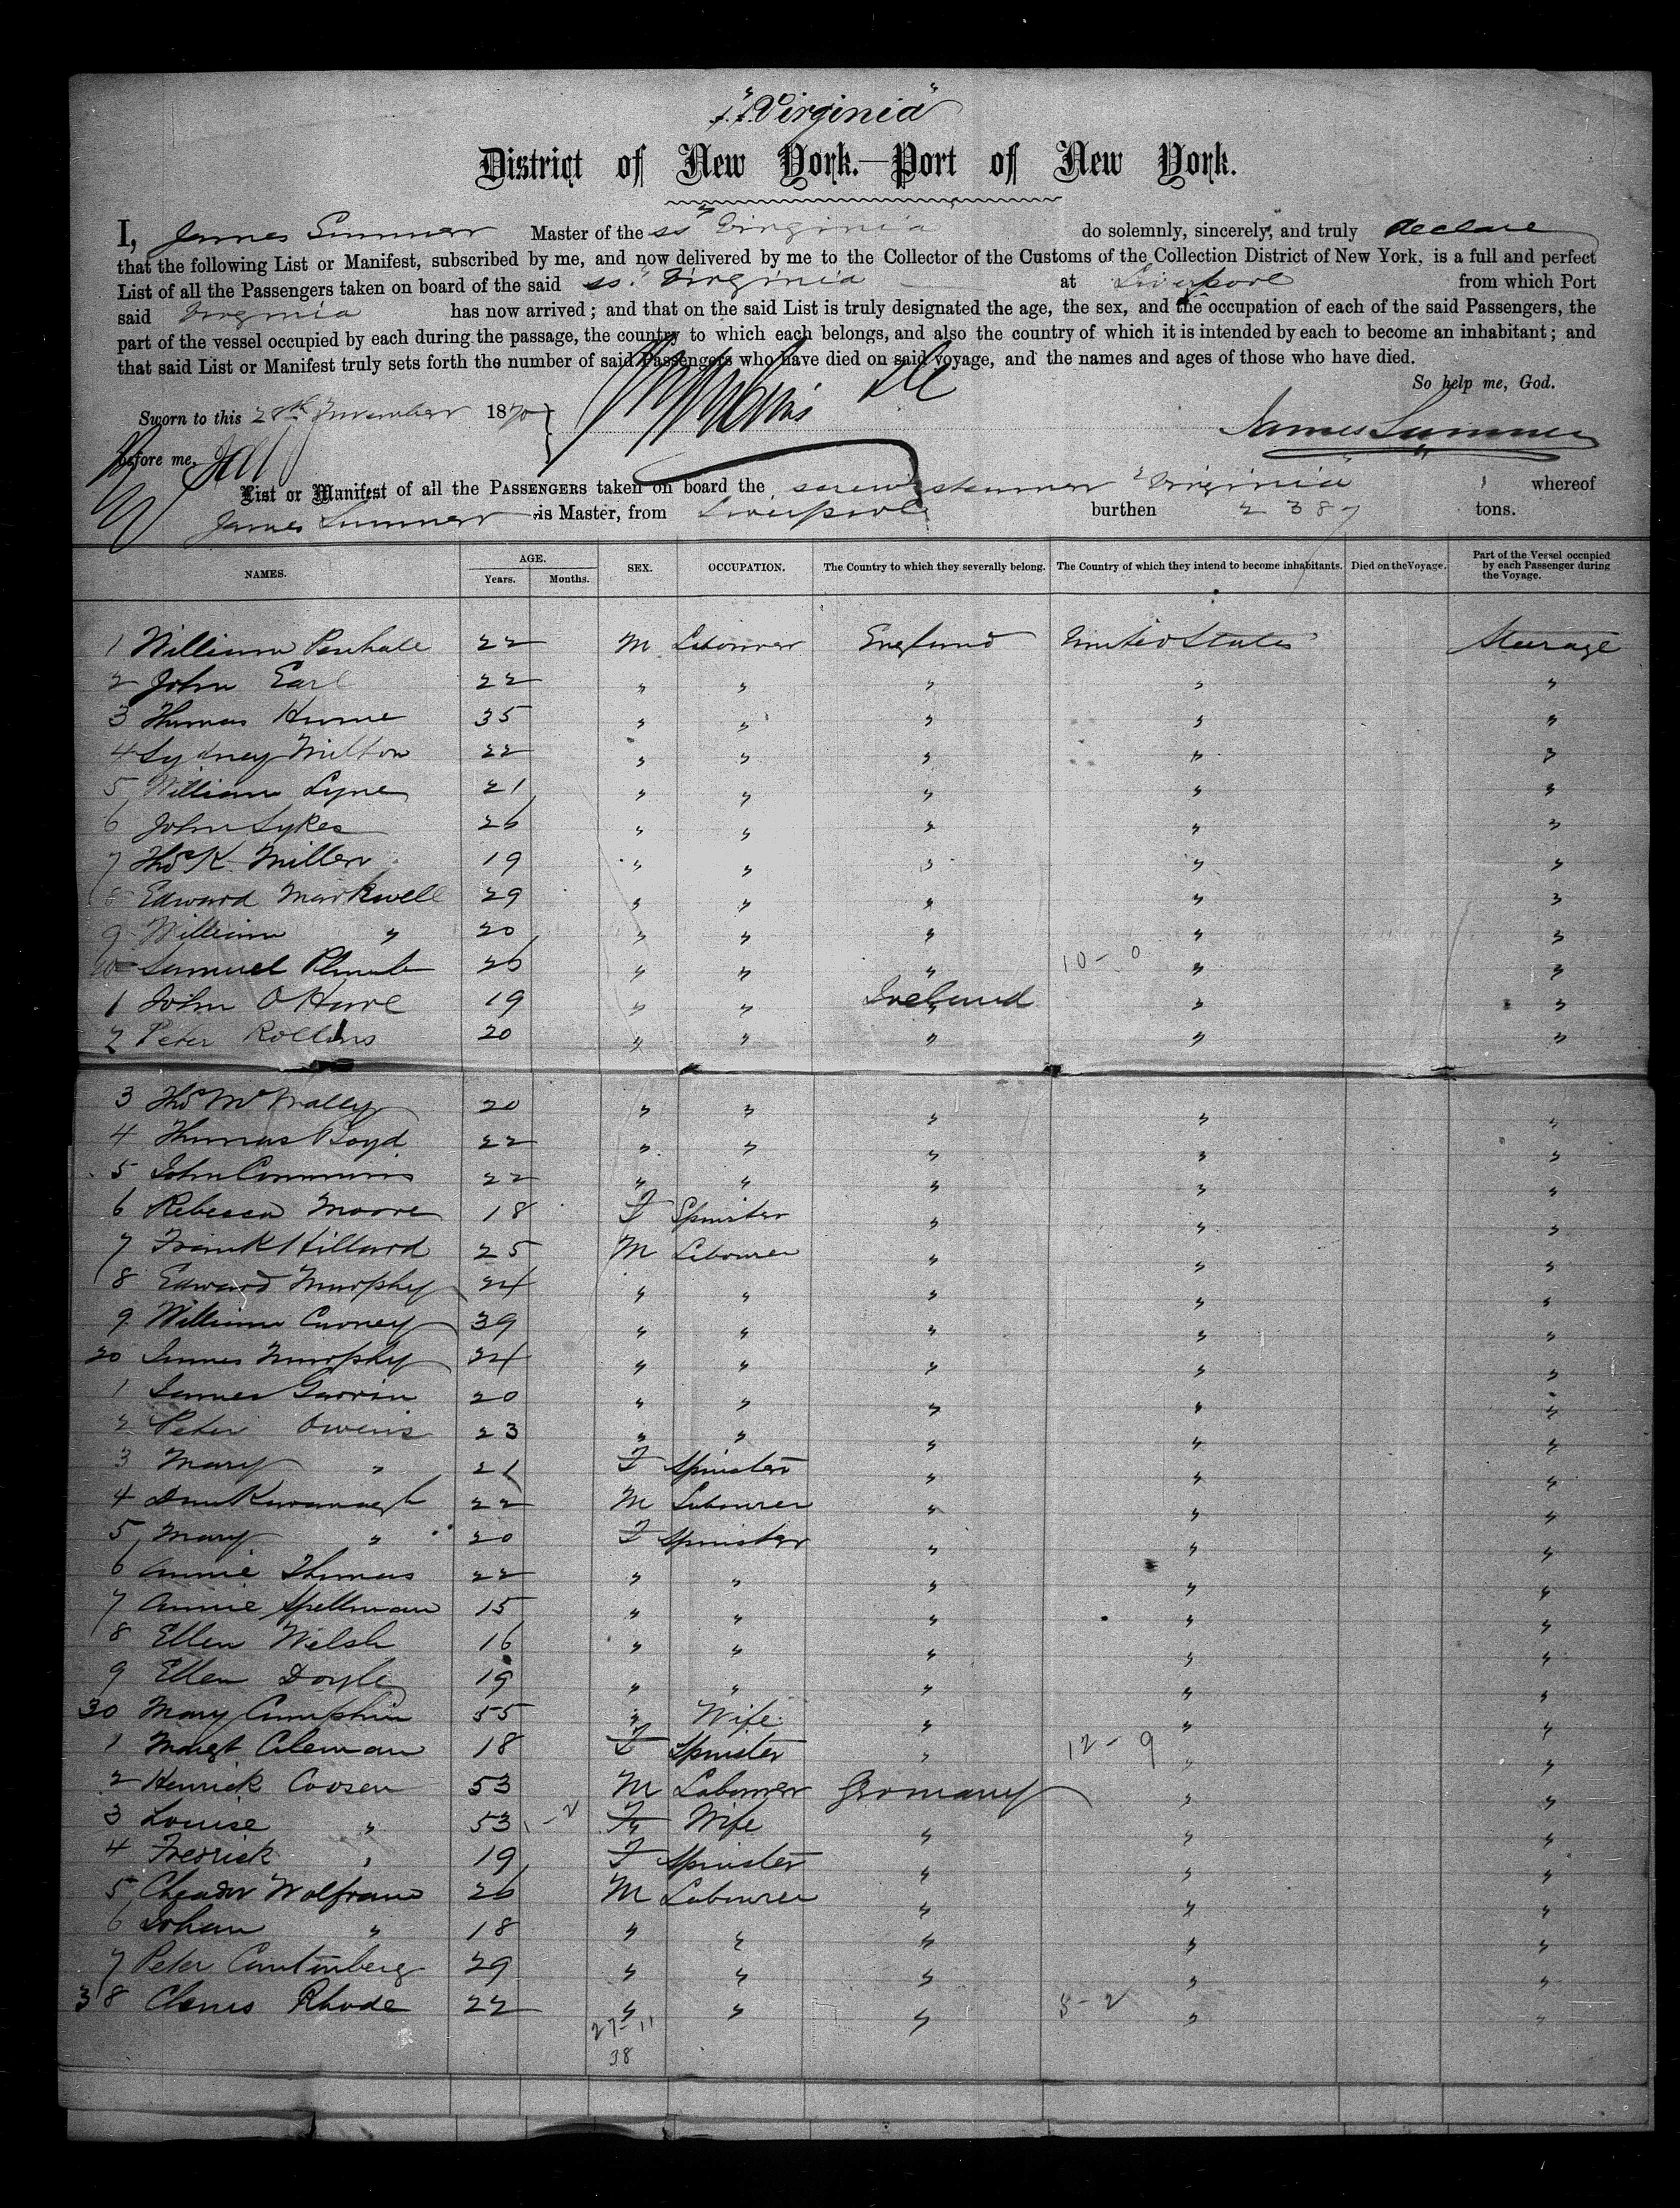 "S.S. Virginia"
District of New York.—Port of New York.
I, James Sumner Master of the ss Virginia do solemnly, sincerely, and truly declare
that the following List or Manifest, subscribed by me, and now delivered by me to the Collector of the Customs of the Collection District of New York, is a full and perfect
List of all the Passengers taken on board of the said ss. Virginia at Liverpool from which Port
said Virginia has now arrived; and that on the said List is truly designated the age, the sex, and the occupation of each of the said Passengers, the
part of the vessel occupied by each during the passage, the country to which each belongs, and also the country of which it is intended by each to become an inhabitant; and
that said List or Manifest truly sets forth the number of said Passengers who have died on said voyage, and the names and ages of those who have died.
So help me, God.
Sworn to this 28th November 1870
James Sumner
Before me,
List or Manifest of all the PASSENGERS taken on board the screw steamer "Virginia" whereof
James Sumner is Master, from Liverpool burthen 2387 tons.
NAMES. AGE. Years. Months. SEX. OCCUPATION. The Country to which they severally belong. The Country of which they intend to become inhabitants. Died on the Voyage. Part of the Vessel occupied by each Passenger during the Voyage.
1 William Penhale 22 M Labourer England United States Steerage
2 John Earl 22 " " " " "
3 Thomas Hume 35 " " " " "
4 Sydney Milton 22 " " " " "
5 William Lyne 21 " " " " "
6 John Sykes 26 " " " " "
7 Thos K Miller 19 " " " " "
8 Edward Markwell 29 " " " " "
9 William " 20 " " " " "
10 Samuel Plumb 26 " " " 10-0 " "
1 John O Hare 19 " " Ireland " "
2 Peter Rollins 20 " " " " "
3 Thos McNally 20 " " " " "
4 Thomas Boyd 22 " " " " "
5 John Commins 22 " " " " "
6 Rebecca Moore 18 F Spinster " " "
7 Frank Hillard 25 M Labourer " " "
8 Edward Murphy 24 " " " " "
9 William Carney 39 " " " " "
20 James Murphy 24 " " " " "
1 James Garvin 20 " " " " "
2 Peter Owens 23 " " " " "
3 Mary " 21 F Spinster " " "
4 Dan Kavanagh 22 M Labourer " " "
5 Mary " 20 F Spinster " " "
6 Annie Thomas 22 " " " " "
7 Annie Spellman 15 " " " " "
8 Ellen Welsh 16 " " " " "
9 Ellen Doyle 19 " " " " "
30 Mary 55 " Wife " " "
1 Margt Coleman 18 F Spinster " 12-9 " "
2 Henrick Coosen 53 M Labourer Germany " "
3 Louise " 53 -2 F Wife " " "
4 Fredrick " 19 F Spinster " " "
5 Wolfram 26 M Labourer " " "
6 Johan " 18 " " " " "
7 Peter Cantenberg 29 " " " " "
38 Rhode 22 " " " 5-2 " "
27-11
38